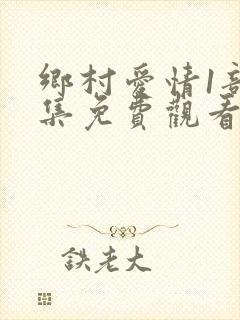 鄉村愛情1部
集免費觀看
鉄老大